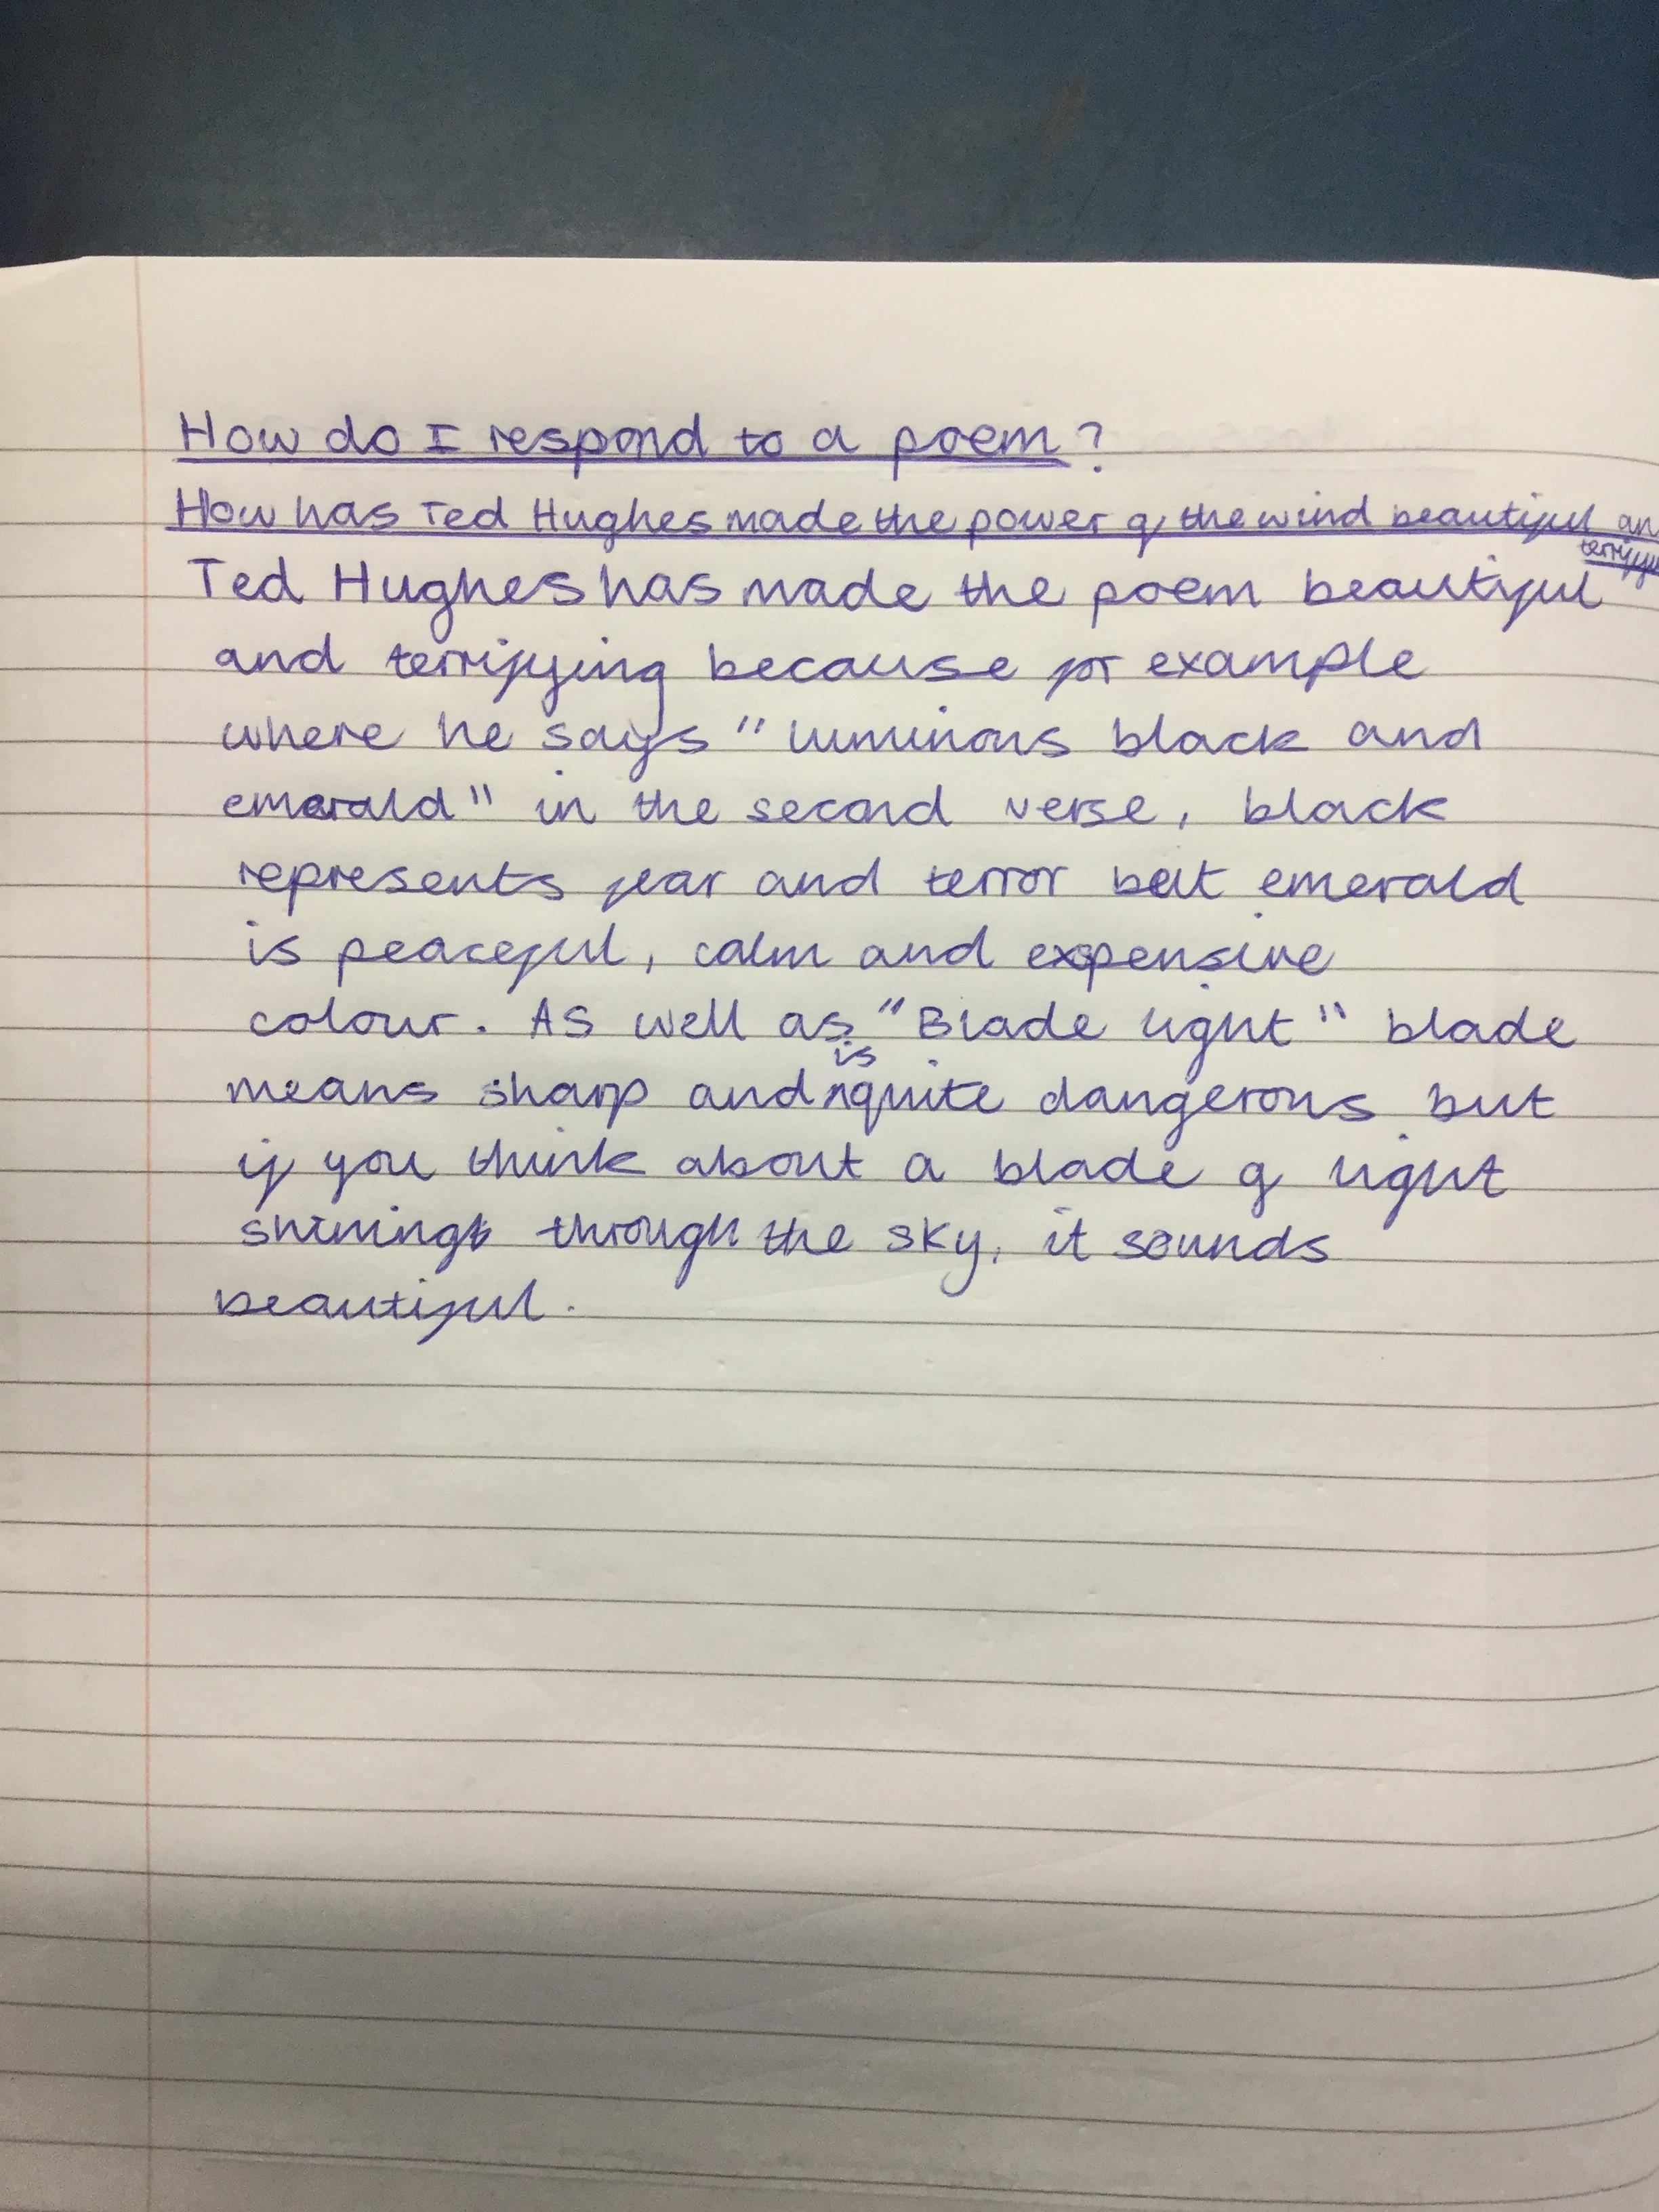 How do I respond to a poem?
How has Ted Hughes made the power of the wind beautiful an
terrifyi
Ted Hughes has made the poem beautiful
and terrifying because for example
where he says "luminous black and
emerald" in the second verse, black
represents fear and terror but emerald
is peaceful, calm and expensive
colour. As well as "Blade light" blade
is
means sharp and quite dangerous but
if you think about a blade of light
shining through the sky, it sounds
beautiful.